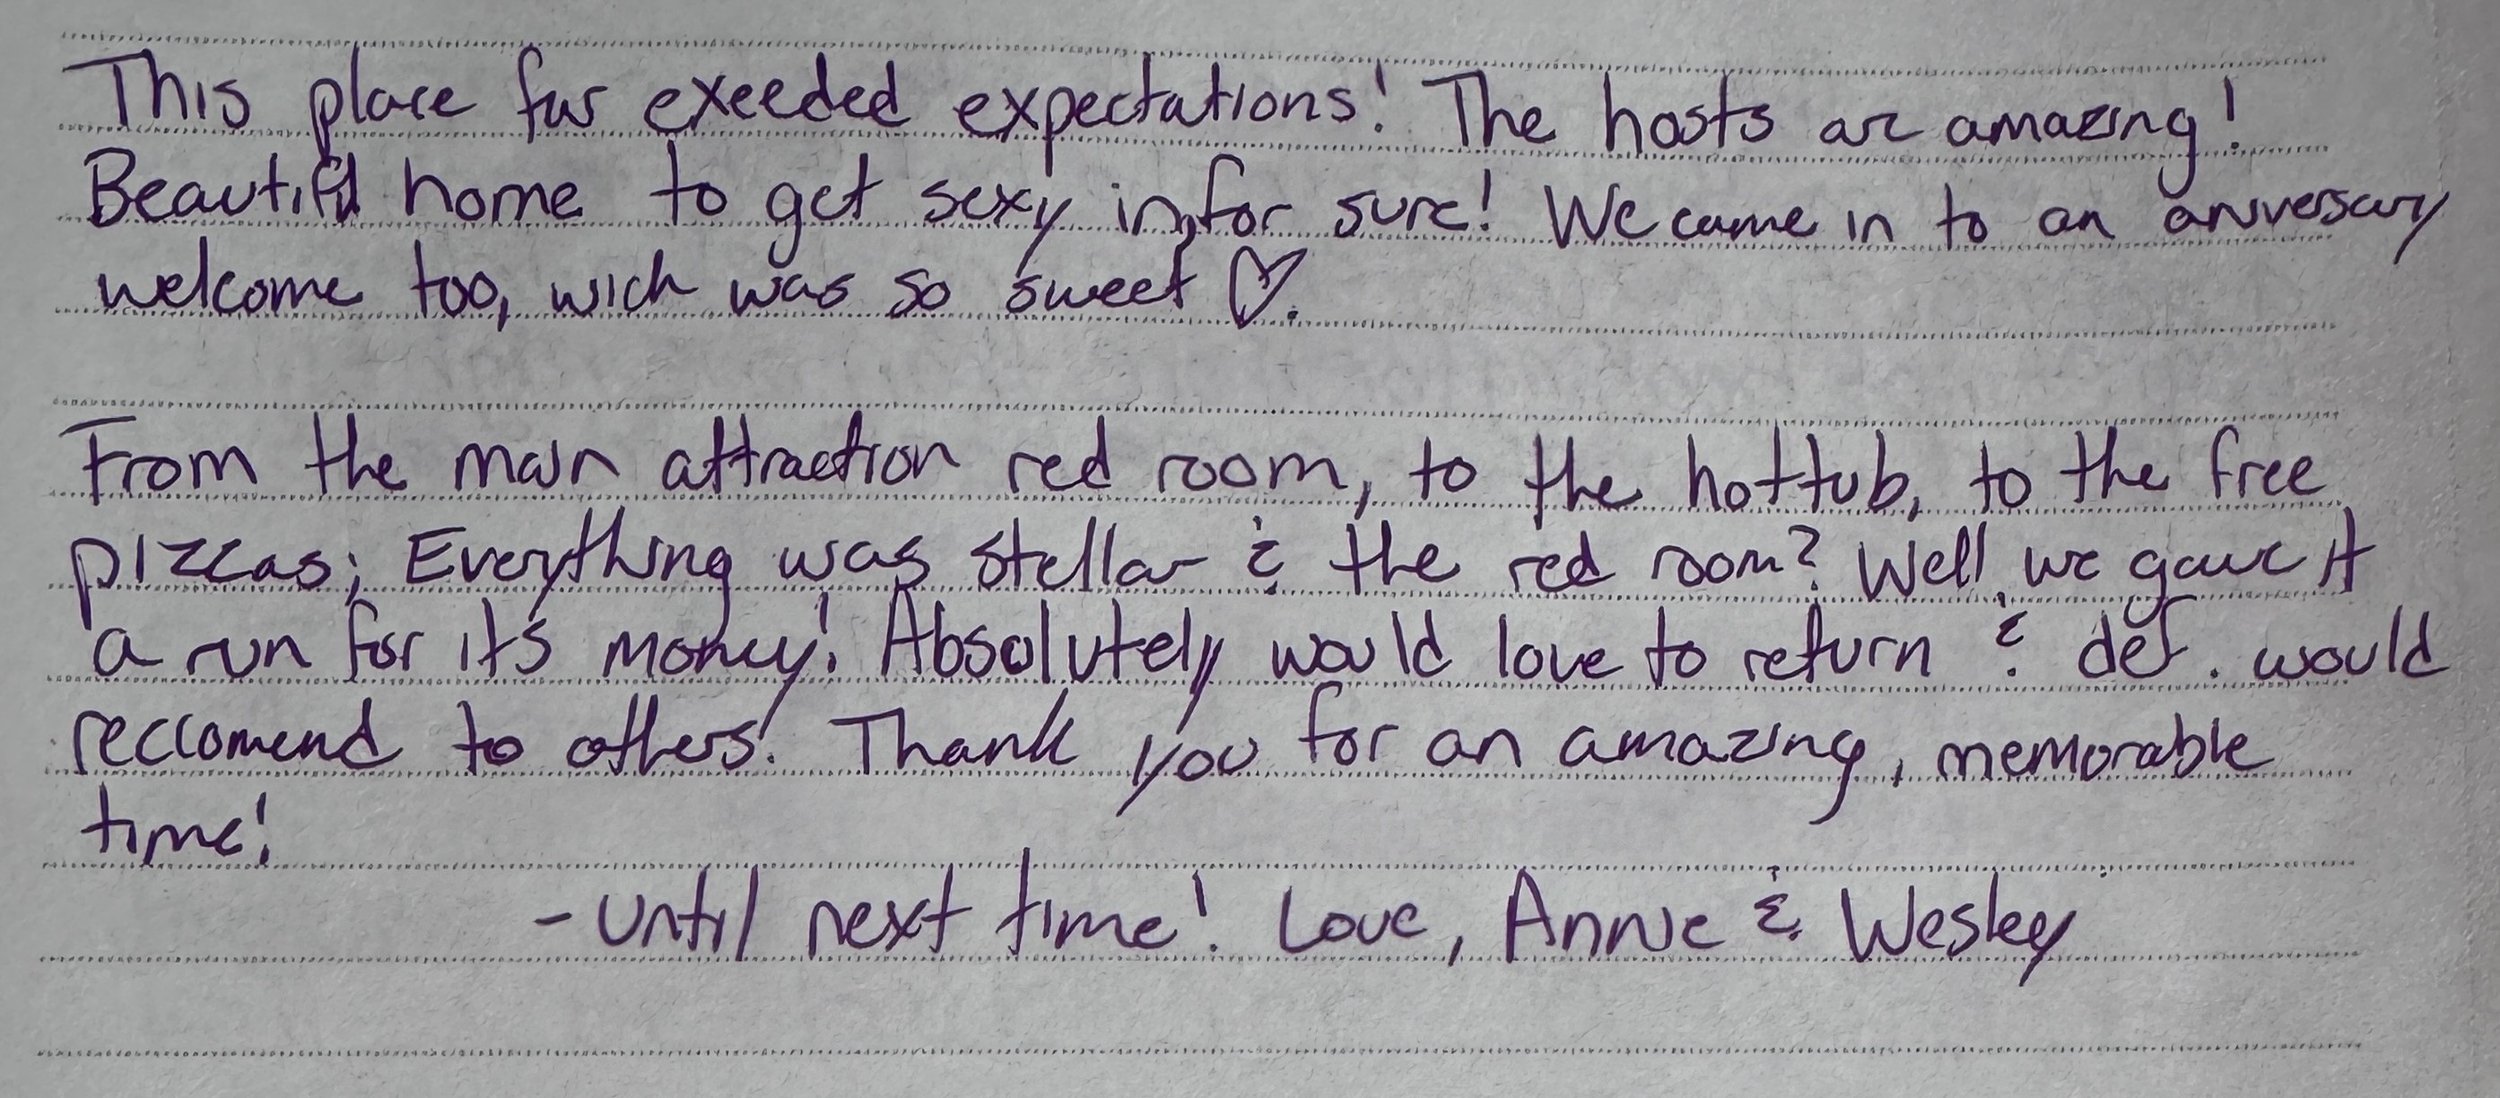 This place far exeeded expectations! The hosts are amazing!
Beautiful home to get sexy in, for sure! We came in to an aniversary
welcome too, wich was so sweet ♡.
From the main attraction red room, to the hottub, to the free
pizzas; Everything was stellar & the red room? Well, we gave it
a run for it's money! Absolutely would love to return & def. would
reccomend to others! Thank you for an amazing, memorable
time!
- Until next time! Love, Annie & Wesley